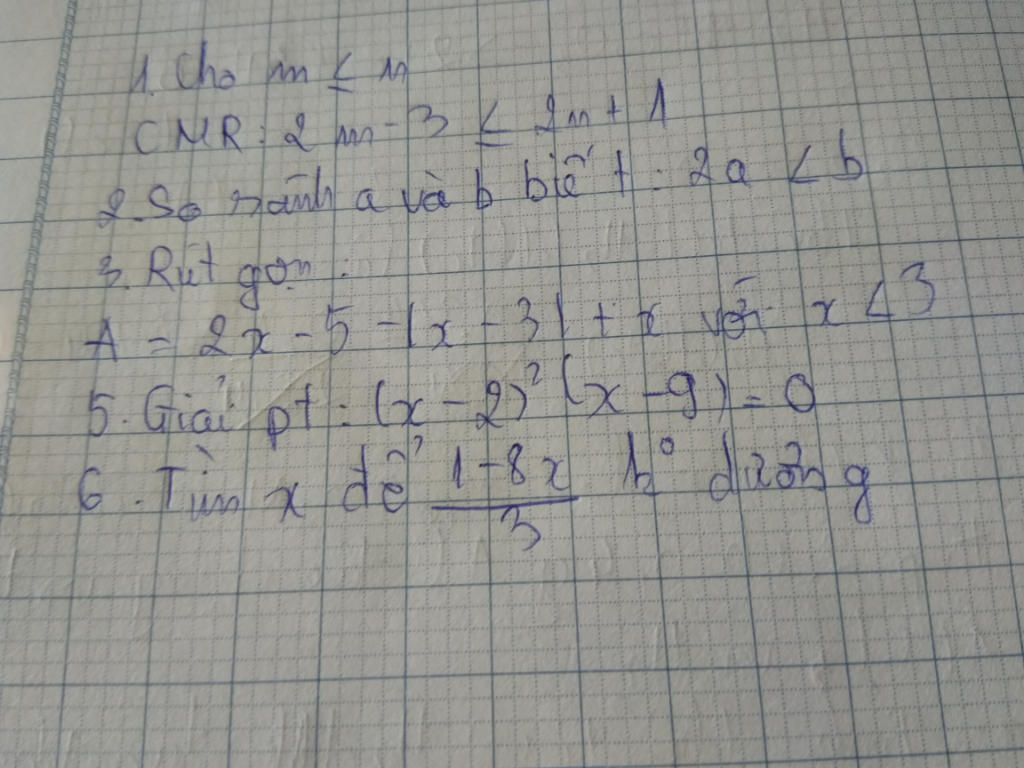 1. Cho m ≤ n
CMR: 2m - 3 ≤ 2n + 1
2. So sánh a và b biết: 2a < b
3. Rút gọn:
A = 2x - 5 - |x - 3| + x với x < 3
5. Giải pt: (x - 2)² (x - 9) = 0
6. Tìm x để \frac{1 - 8x}{3} k° dương